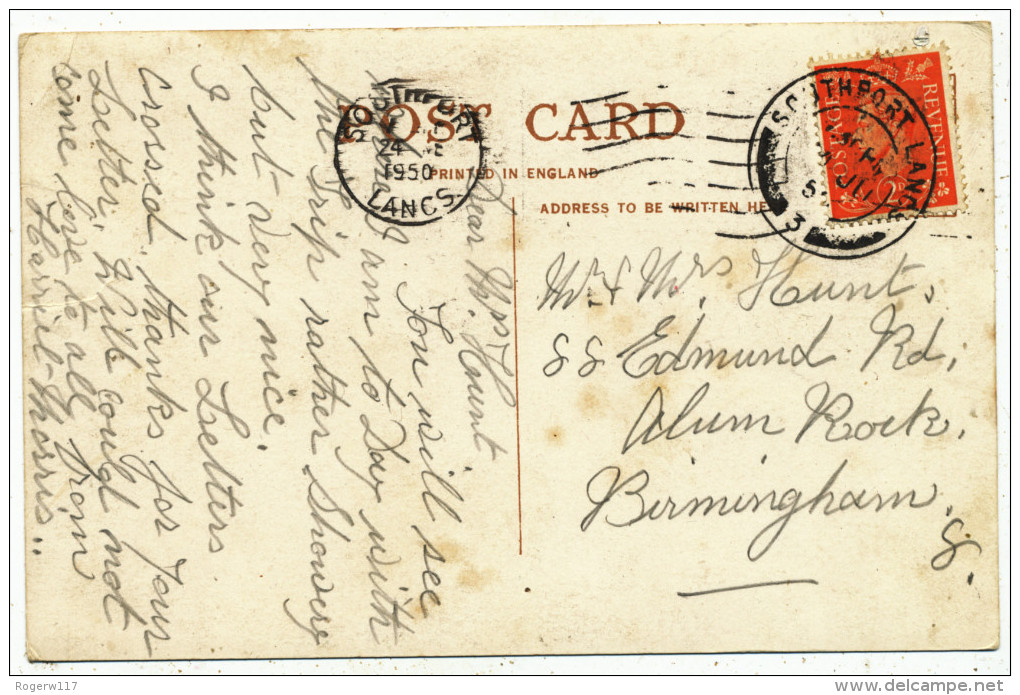 POST CARD
PRINTED IN ENGLAND
ADDRESS TO BE WRITTEN HE
SOUTHPORT
24
1950
LANCS
SOUTHPORT LANCS
JU
3
POSTAGE
REVENUE
2D
Dear Mrs Haunt
You will see
am to Day with
the trip rather Showery
but very nice,
I think our Letters
Crossed. thanks for Your
Letter, Will could not
Come Love to all from
Harriet - Morris..
Mr & Mrs, Hunt,
88 Edmund Rd,
Alum Rock,
Birmingham,
8.
Rogerw117
delcampe.net